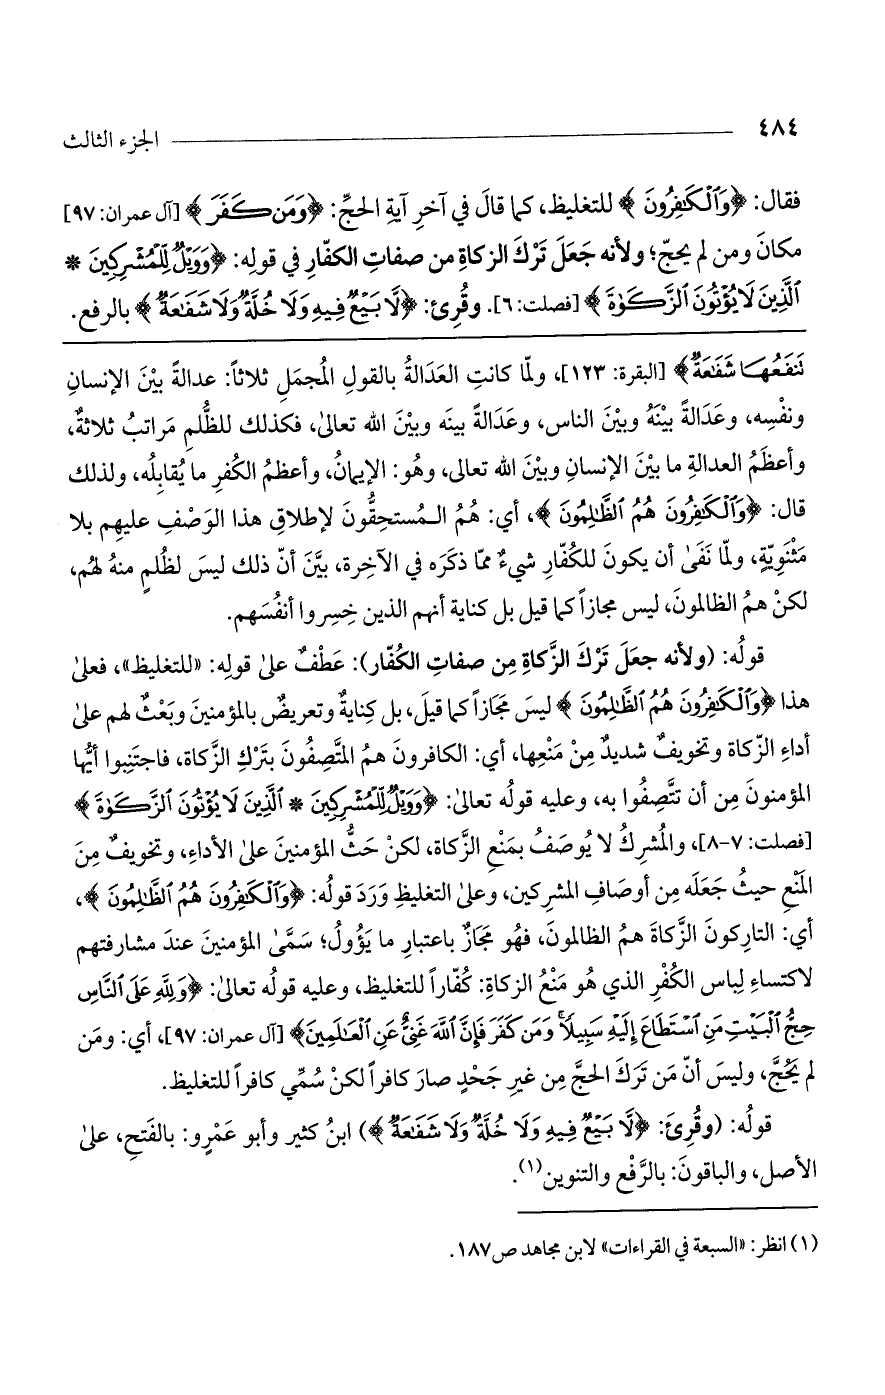 ٤٨٤ الجزء الثالث
فقال: ﴿وَٱلْكَٰفِرُونَ﴾ للتغليظ، كما قالَ في آخرِ آيةِ الحجِّ: ﴿وَمَن كَفَرَ﴾ [آل عمران: ٩٧]
مكانَ ومن لم يحجّ؛ ولأنه جَعَلَ تَرْكَ الزكاةِ من صفاتِ الكفّارِ في قولِه: ﴿وَوَيْلٌ لِّلْمُشْرِكِينَ *
ٱلَّذِينَ لَا يُؤْتُونَ ٱلزَّكَوٰةَ﴾ [فصلت: ٦]. وقُرِئ: ﴿لَّا بَيْعٌ فِيهِ وَلَا خُلَّةٌ وَلَا شَفَٰعَةٌ﴾ بالرفع.
تَنفَعُهَا شَفَٰعَةٌ﴾ [البقرة: ١٢٣]، ولمّا كانتِ العَدَالةُ بالقولِ المُجمَلِ ثلاثاً: عدالةً بيْنَ الإنسانِ
ونفْسِه، وعَدَالةً بيْنَهُ وبيْنَ الناس، وعَدَالةً بينَه وبيْنَ الله تعالىٰ، فكذلك للظُّلمِ مَراتبُ ثلاثةٌ،
وأعظَمُ العدالةِ ما بيْنَ الإنسانِ وبيْنَ الله تعالى، وهُو: الإيمانُ، وأعظمُ الكُفرِ ما يُقابِلُه، ولذلك
قال: ﴿وَٱلْكَٰفِرُونَ هُمُ ٱلظَّٰلِمُونَ﴾، أي: هُمُ المُستحِقُّونَ لإطلاقِ هذا الوَصْفِ عليهِم بلا
مَثْنَوِيّةٍ، ولمّا نَفَىٰ أن يكونَ للكُفّارِ شيءٌ ممّا ذكَرَه في الآخِرة، بيَّنَ أنّ ذلك ليسَ لظُلمٍ منهُ لهُم،
لكنْ همُ الظالمونَ، ليس مجازاً كما قيل بل كناية أنهم الذين خِسِروا أنفُسَهم.
قولُه: (ولأنه جعَلَ تَرْكَ الزَّكاةِ مِن صفاتِ الكُفّار): عَطْفٌ علىٰ قولِه: «للتغليظ»، فعلىٰ
هذا ﴿وَٱلْكَٰفِرُونَ هُمُ ٱلظَّٰلِمُونَ﴾ ليسَ مَجَازاً كما قيلَ، بل كِنايةٌ وتعريضٌ بالمؤمنينَ وبَعْثٌ لهم علىٰ
أداءِ الزّكاة وتخويفٌ شديدٌ مِنْ مَنْعِها، أي: الكافرونَ همُ المتَّصِفُونَ بتَرْكِ الزَّكاة، فاجتَنِبوا أيُّها
المؤمنونَ مِن أن تتَّصِفُوا به، وعليه قولُه تعالىٰ: ﴿وَوَيْلٌ لِّلْمُشْرِكِينَ * ٱلَّذِينَ لَا يُؤْتُونَ ٱلزَّكَوٰةَ﴾
[فصلت: ٧-٨]، والمُشرِكُ لا يُوصَفُ بمَنْعِ الزَّكاة، لكنْ حَثُّ المؤمنينَ علىٰ الأداءِ، وتخويفٌ مِنَ
المَنْعِ حيثُ جَعَلَه مِن أوصَافِ المشرِكين، وعلىٰ التغليظِ وَرَدَ قولُه: ﴿وَٱلْكَٰفِرُونَ هُمُ ٱلظَّٰلِمُونَ﴾،
أي: التارِكونَ الزَّكاةَ همُ الظالمونَ، فهُو مَجَازٌ باعتبارِ ما يَؤُولُ؛ سَمَّىٰ المؤمنينَ عندَ مشارفتهم
لاكتساءِ لِباس الكُفْرِ الذي هُو مَنْعُ الزكاةِ: كُفّاراً للتغليظ، وعليه قولُه تعالىٰ: ﴿وَلِلَّهِ عَلَى ٱلنَّاسِ
حِجُّ ٱلْبَيْتِ مَنِ ٱسْتَطَاعَ إِلَيْهِ سَبِيلًا ۚ وَمَن كَفَرَ فَإِنَّ ٱللَّهَ غَنِيٌّ عَنِ ٱلْعَٰلَمِينَ﴾ [آل عمران: ٩٧]، أي: ومَن
لم يَحُجَّ، وليسَ أنّ مَن تَرَكَ الحجَّ مِن غيرِ جَحْدٍ صارَ كافراً لكنْ سُمِّي كافراً للتغليظ.
قولُه: (وقُرِئَ: ﴿لَّا بَيْعٌ فِيهِ وَلَا خُلَّةٌ وَلَا شَفَٰعَةٌ﴾) ابنُ كثير وأبو عَمْرٍو: بالفَتح، علىٰ
الأصل، والباقونَ: بالرَّفْع والتنوين(١).
(١) انظر: «السبعة في القراءات» لابن مجاهد ص١٨٧.